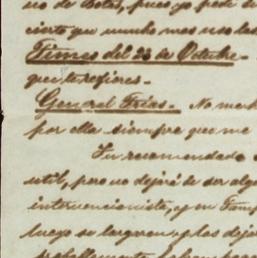 no de Botas, pues yo pedí
cierto que mucho mas uso las
Times del 23 de Octubre
que te refieres.-
General Frías.- No me
por ella siempre que me
Tu recomendado
util, pero no dejará de ser alg
intervencionista, y en Tam
luego se largaron y los dejar